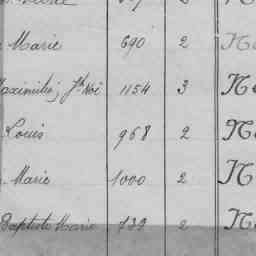 Marie 690 2
Maximilien, Jh Noë 1154 3
Louis 968 2
Marie 1000 2
Baptiste Marie 739 2